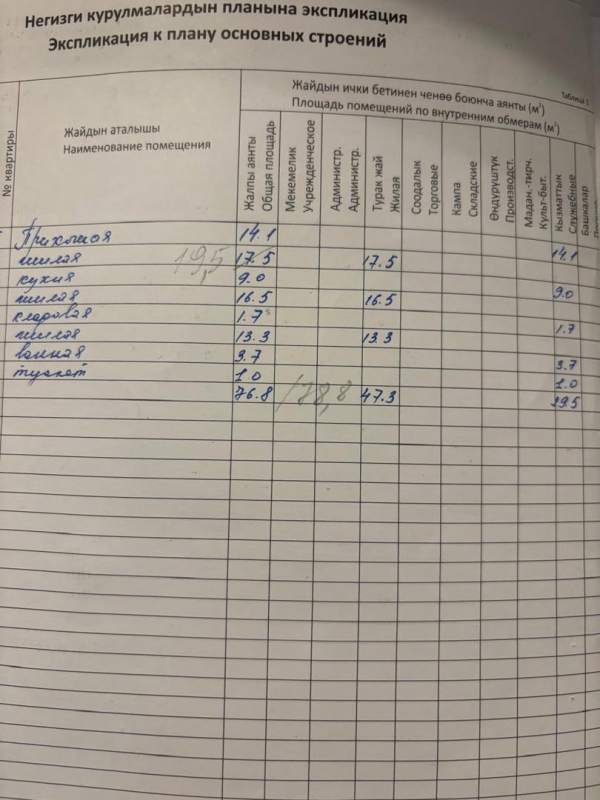 Негизги курулмалардын планына экспликация
Экспликация к плану основных строений
Таблица 1
№ квартиры
Жайдын аталышы
Наименование помещения
Жайдын ички бетинен ченөө боюнча аянты (м²)
Площадь помещений по внутренним обмерам (м²)
Жалпы аянты
Общая площадь
Мекемелик
Учрежденческое
Администр.
Администр.
Турак жай
Жилая
Соодалык
Торговые
Кампа
Складские
Өндүрүштүк
Производст.
Мадан.-тирч.
Культ-быт.
Кызматтык
Служебные
Башкалар
Прихожая 14.1 14.1
жилая 19,5 17.5 17.5
кухня 9.0 9.0
жилая 16.5 16.5
кладовая 1.7 1.7
жилая 13.3 13.3
ванная 3.7 3.7
туалет 1.0 1.0
76.8 /78,8 47.3 29.5